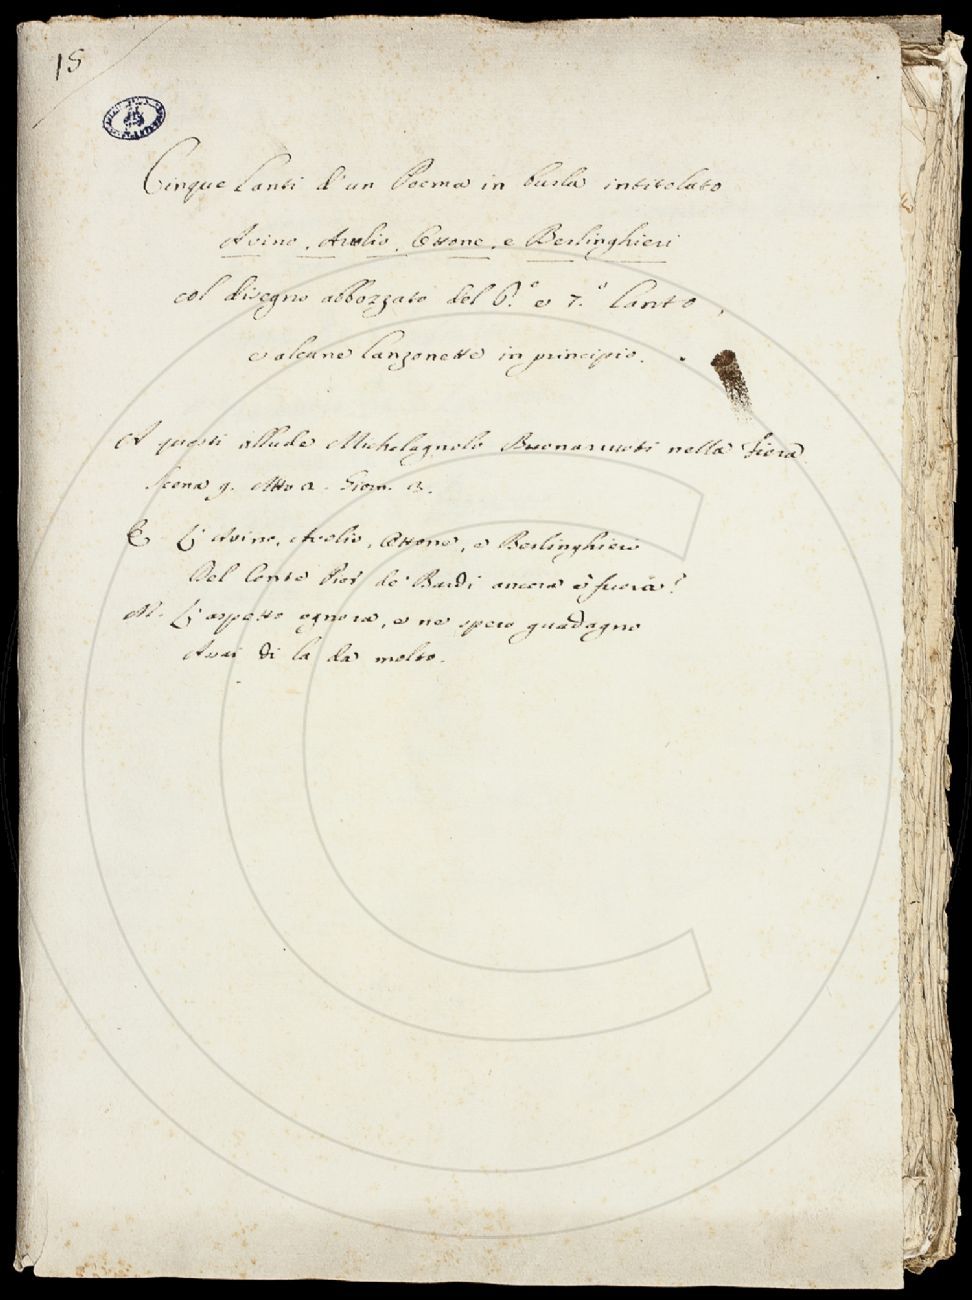 15
Cinque Canti d'un Poema in burla intitolato
Avino, Avolio, Ottone, e Berlinghieri
col disegno abbozzato del 6.º e 7.º Canto,
e alcune Canzonette in principio.
A questi allude Michelagnolo Buonarruoti nella Fiera
Scena 9. Atto 2. Giorn. 3.
E. L'Avino, Avolio, Ottone, e Berlinghieri
Del Conte Pier de' Bardi ancora è fuora?
M. L'aspetto ognora, e ne spero guadagno
Assai di la da molto.